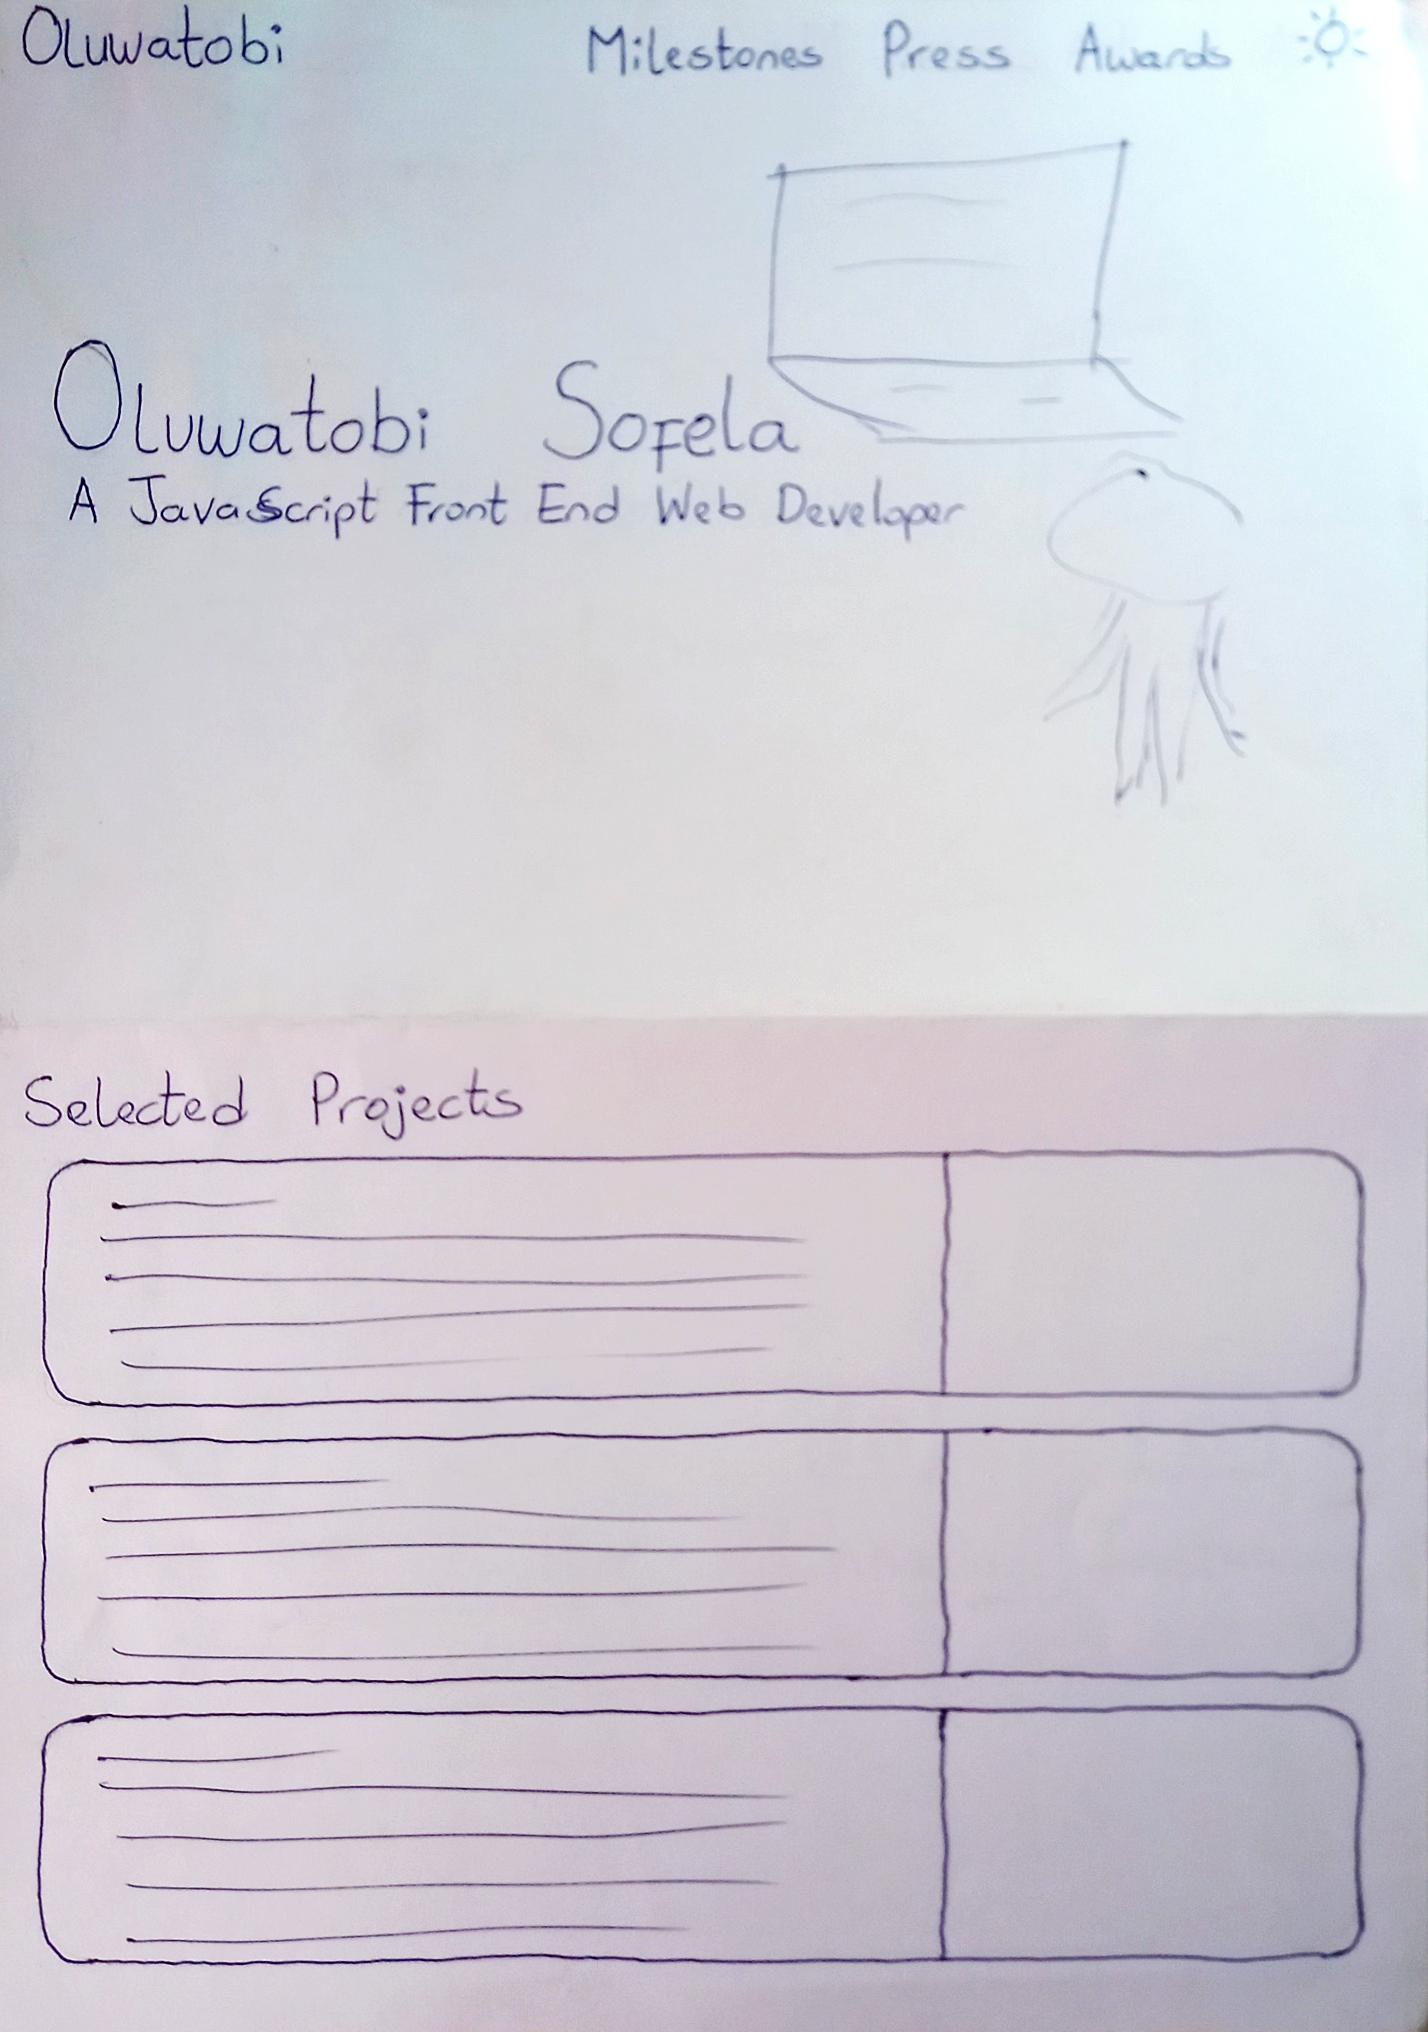 Oluwatobi
Milestones Press Awards
Oluwatobi Sofela
A JavaScript Front End Web Developer
Selected Projects